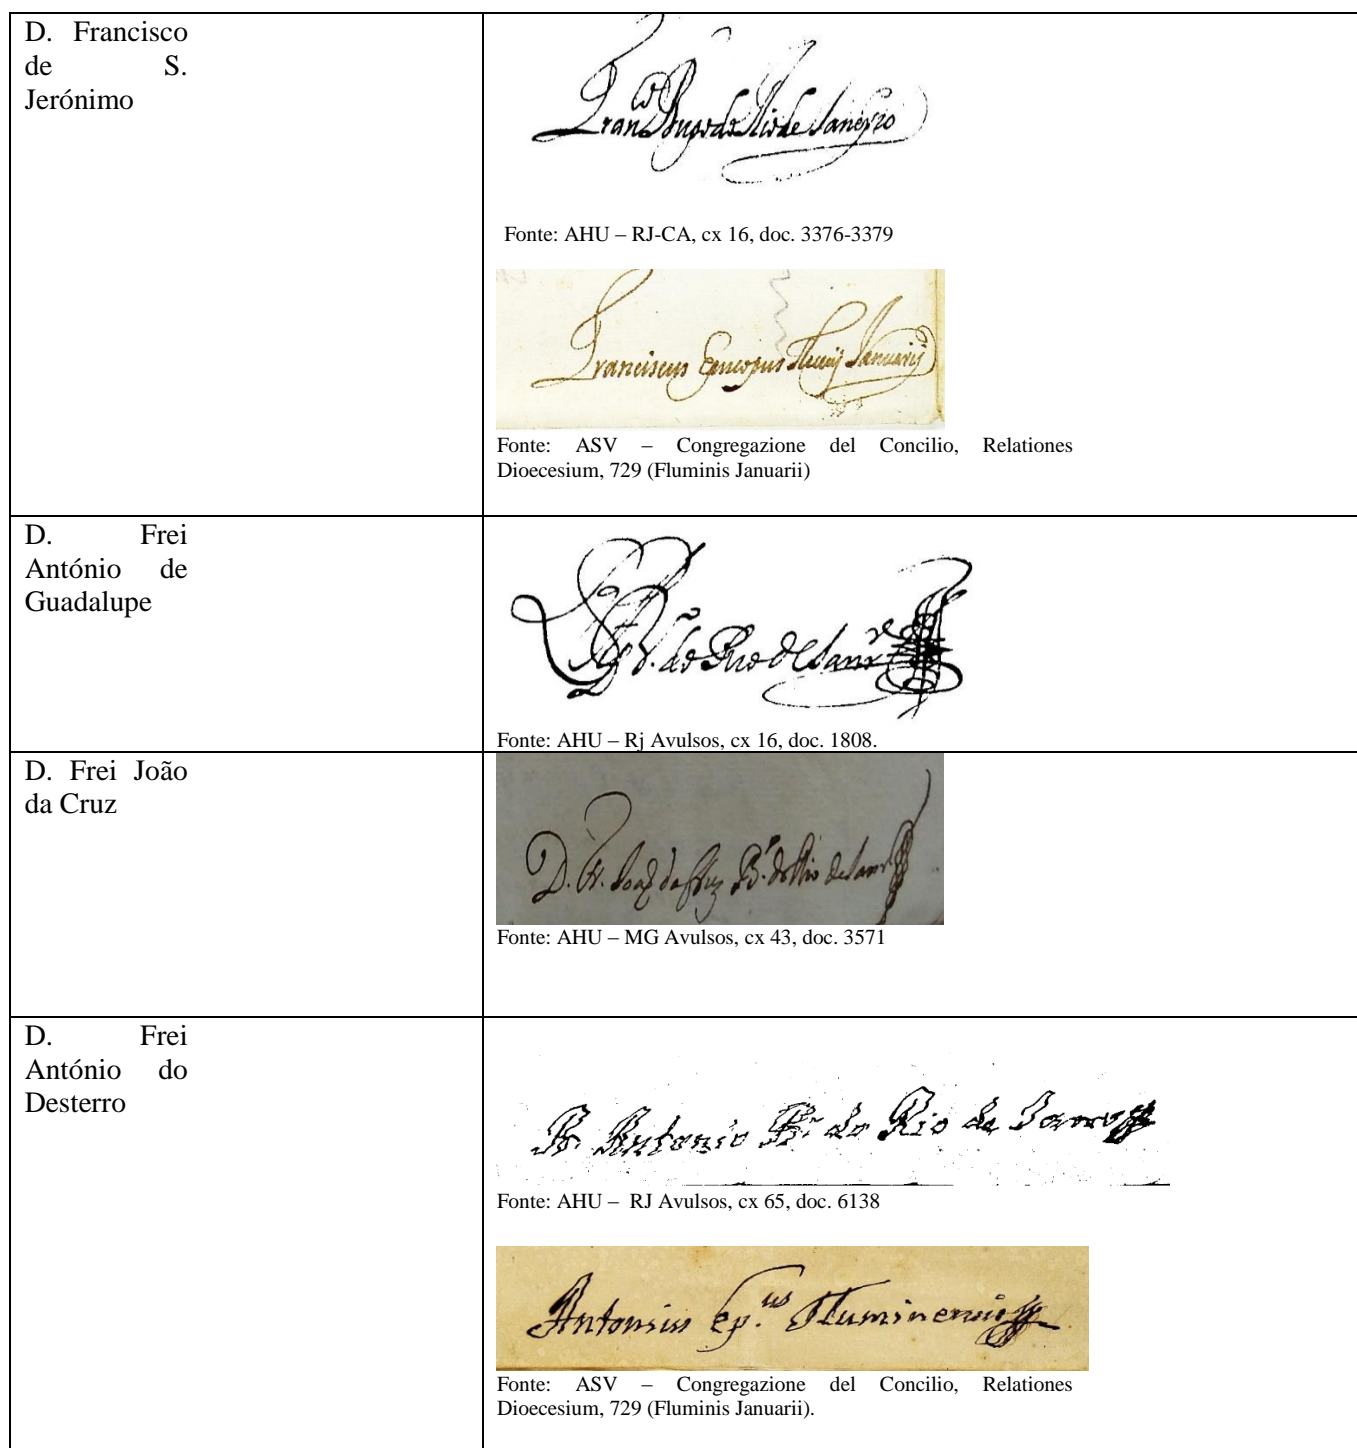 D. Francisco
de S.
Jerónimo
Fran.co Bispo do Rio de Janeyro
Fonte: AHU – RJ-CA, cx 16, doc. 3376-3379
Franciscus Episcopus Fluvij Januarij
Fonte: ASV – Congregazione del Concilio, Relationes
Dioecesium, 729 (Fluminis Januarii)
D. Frei
António de
Guadalupe
do Rio de Janr.o
Fonte: AHU – Rj Avulsos, cx 16, doc. 1808.
D. Frei João
da Cruz
D. Fr. Joaõ da Cruz B.o do Rio de Janr.o
Fonte: AHU – MG Avulsos, cx 43, doc. 3571
D. Frei
António do
Desterro
Antonio B.o do Rio de Janro
Fonte: AHU – RJ Avulsos, cx 65, doc. 6138
Antonius Ep.us Fluminensis
Fonte: ASV – Congregazione del Concilio, Relationes
Dioecesium, 729 (Fluminis Januarii).